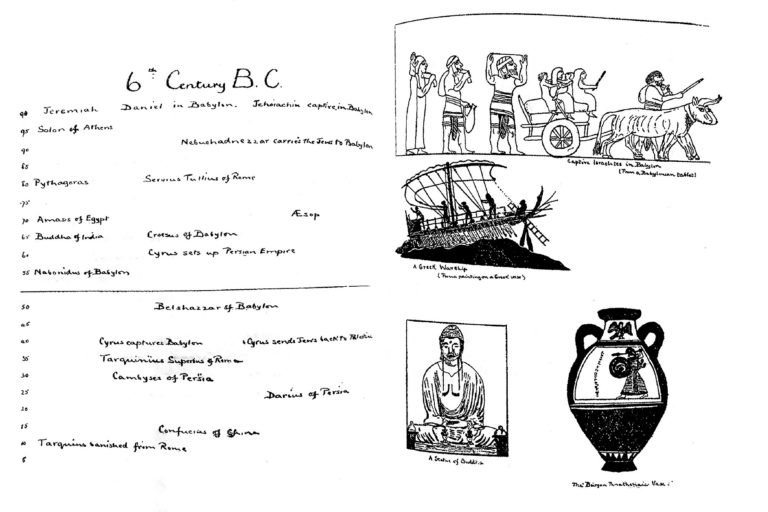 6th Century B.C.
Jeremiah Daniel in Babylon. Jehoiachin captive, in Babylon
95 Solon of Athens
90 Nebuchadnezzar carries the Jews to Babylon
80 Pythagoras Servius Tullius of Rome
75
70 Amasis of Egypt Æsop
65 Buddha of India Croesus of Babylon
60 Cyrus sets up Persian Empire
55 Nabonidus of Babylon
50 Belshazzar of Babylon
45
40 Cyrus captures Babylon Cyrus sends Jews back to
35 Tarquinius Superbus of Rome
30 Cambyses of Persia
25 Darius of Persia
20
15 Confucius of China
10 Tarquins banished from Rome
5
Captive Israelites in Babylon
(From a Babylonian tablet)
A Greek Warship
(From a painting on a Greek vase)
A Statue of Buddha
The Burgon Panathenaic Vase